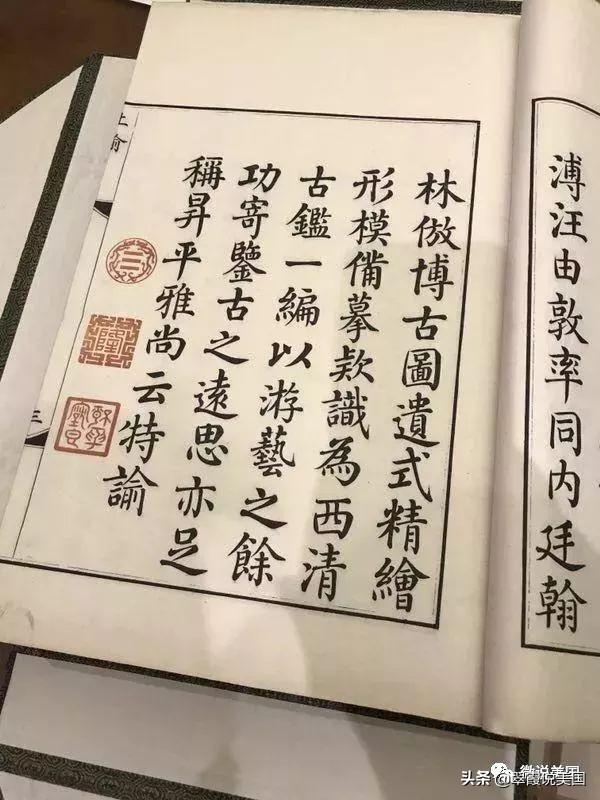 溥汪由敦率同内廷翰
林倣博古圖遺式精繪
形模備摹欵識為西清
古鑑一編以游藝之餘
功寄鑒古之遠思亦足
稱昇平雅尚云特諭
上諭
三
微说美国
头条 @翠霞说美国